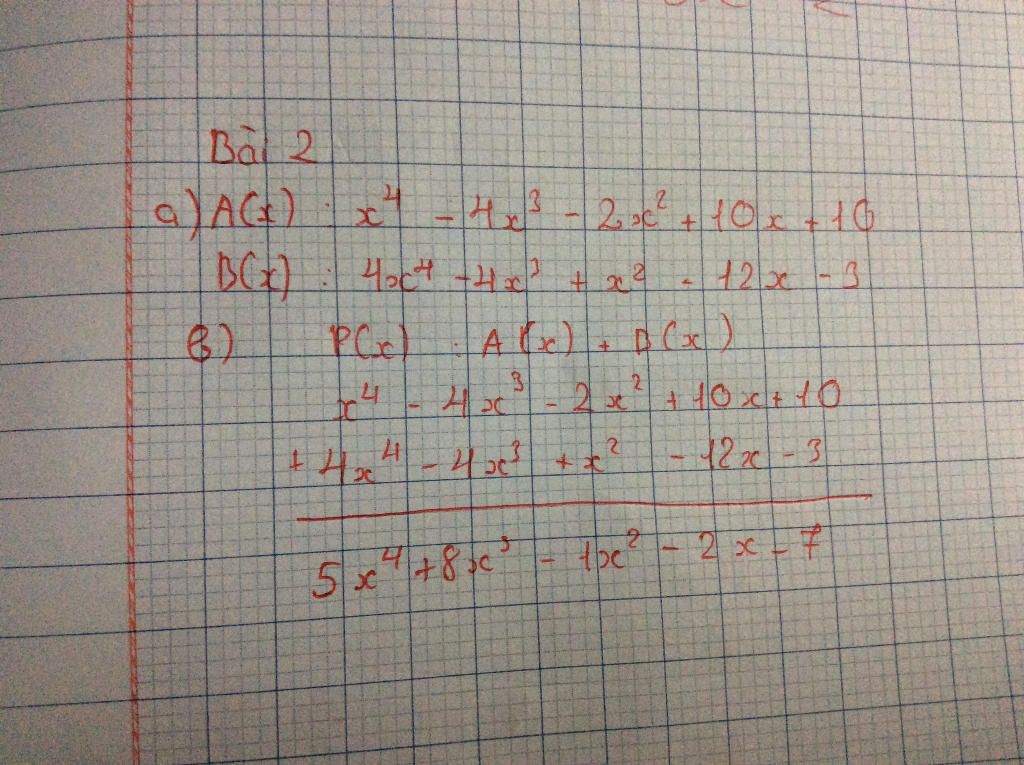 Bài 2
a) A(x) : x⁴ - 4x³ - 2x² + 10x + 10
B(x) : 4x⁴ - 4x³ + x² - 12x - 3
b) P(x) : A(x) + B(x)
x⁴ - 4x³ - 2x² + 10x + 10
+ 4x⁴ - 4x³ + x² - 12x - 3
5x⁴ + 8x³ - 1x² - 2x - 7